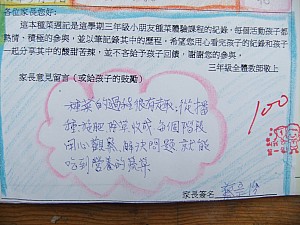 各位家長您好:
這本種菜週記是這學期三年級小朋友種菜體驗課程的紀錄,每個活動孩子都
熱情、積極的參與,並以筆記錄其中的歷程。希望您用心看完孩子的紀錄和孩子
一起分享其中的酸甜苦辣,並不吝給予孩子回饋,謝謝您的參與。
三年級全體教師敬上
家長意見留言(或給孩子的鼓勵)
種菜的過程很有趣,從播
種、施肥、除草、收成,每個階段
用心觀察、解決問題就能
吃到營養的蔬菜
100
家長簽名